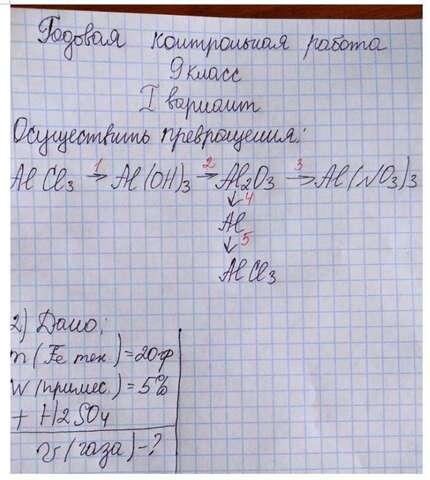 Годовая контрольная работа
9 класс
I вариант
Осуществить превращения:
AlCl3 1→ Al(OH)3 2→ Al2O3 3→ Al(NO3)3
↓4
Al
↓5
AlCl3
2) Дано:
m(Fe тех.)=20гр
W(примес.)=5%
+ H2SO4
V(газа)-?